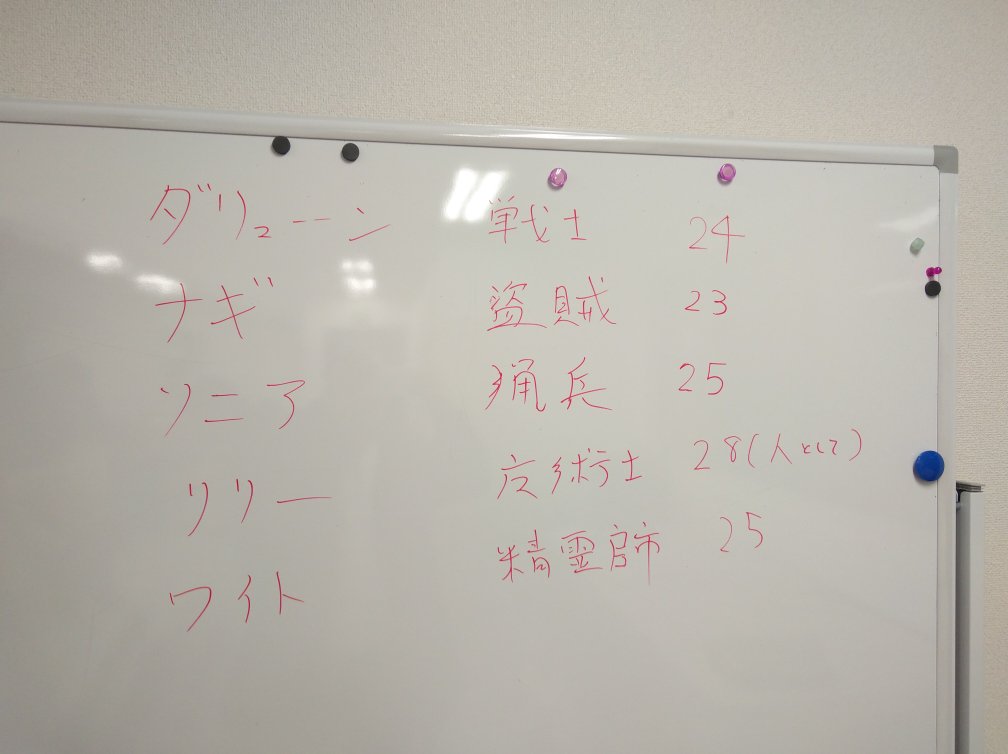 ダリューーン 戦士 24
ナギ 盗賊 23
ソニア 猟兵 25
リリー 術士 28(人として)
ワイト 精霊師 25